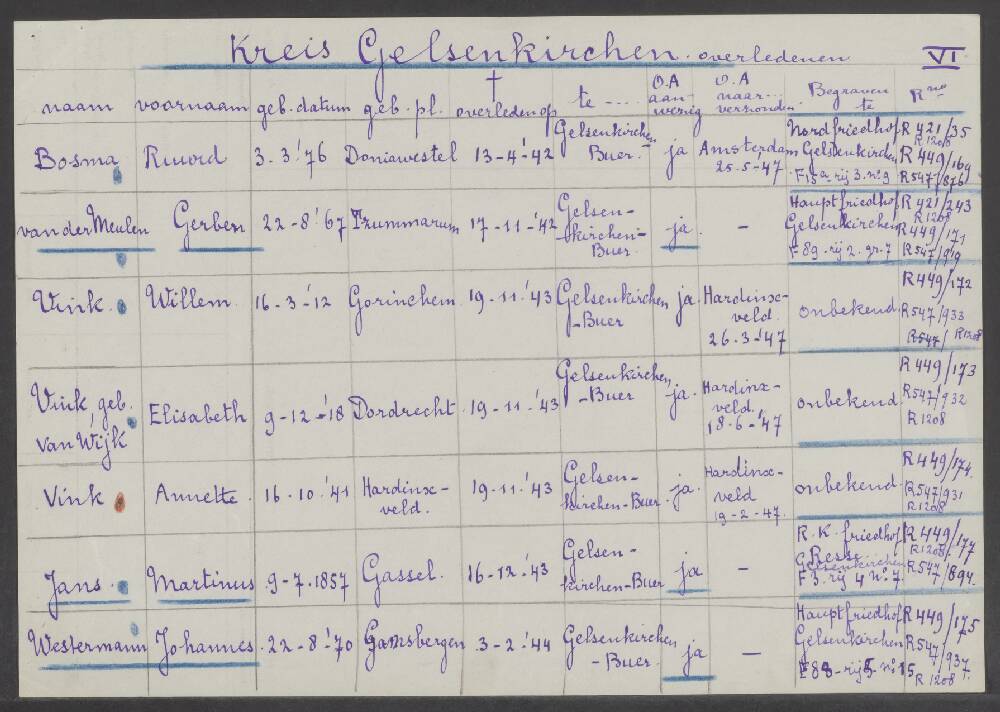 Kreis Gelsenkirchen. overledenen VI
naam voornaam geb. datum geb. pl. † overleden op te .... O.A aanwezig O.A naar... verzonden. Begraven te R no
Bosma Ruurd 3. 3.'76 Doniawestel 13-4-'42 Gelsenkirchen Buer. ja Amsterdam 25.5-47 Nordfriedhof Gelsenkirchen F15a rij 3. no 9 R 421/35 R 1208 R 449/169 R547/876
van der Meulen Gerben 22-8-'67 Trummarum 17-11-'42 Gelsen-kirchen-Buer. ja. - Hauptfriedhof Gelsenkirchen F 89-rij 2. gr. 7 R 421/243 R 1208 R449/171 R547/919
Vink. Willem. 16-3-'12 Gorinchem 19-11.'43 Gelsenkirchen -Buer ja. Hardinx-veld. 26.3-'47 onbekend. R449/172 R547/933 R547/ R1208
Vink, geb. van Wijk Elisabeth 9-12-'18 Dordrecht. 19-11-'43 Gelsenkirchen -Buer ja. Hardinx-veld. 18-6-'47 onbekend R449/173 R547/932 R 1208
Vink Annette. 16-10.'41 Hardinx-veld. 19-11.'43 Gelsen-kirchen-Buer ja. Hardinx-veld 19-2-47. onbekend. R449/174. R547/931 R1208
Jans. Martinus 9-7.1857 Gassel. 16-12-'43 Gelsen-kirchen-Buer ja - R.K. friedhof Resse Gelsenkirchen F 3. rij 4 no 7. R449/177 R1208 R547/894.
Westermann Johannes. 22-8.'70 Gamsbergen 3-2-'44 Gelsenkirchen -Buer. ja - Hauptfriedhof Gelsenkirchen F 88-rij 5. no 15 R449/175 R547/937. R 1208